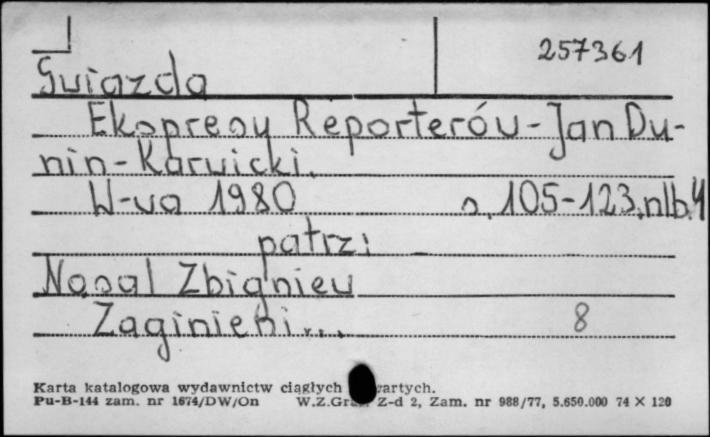 257361
Gwiazda
Ekspresy Reporterów - Jan Du-
nin-Karwicki.
W-wa 1980 s. 105-123, nlb. 4
patrz:
Nasal Zbigniew
Zaginieni...
8
Karta katalogowa wydawnictw ciągłych wartych.
Pu-B-144 zam. nr 1674/DW/On W.Z.Graf. Z-d 2, Zam. nr 988/77, 5.650.000 74 × 120